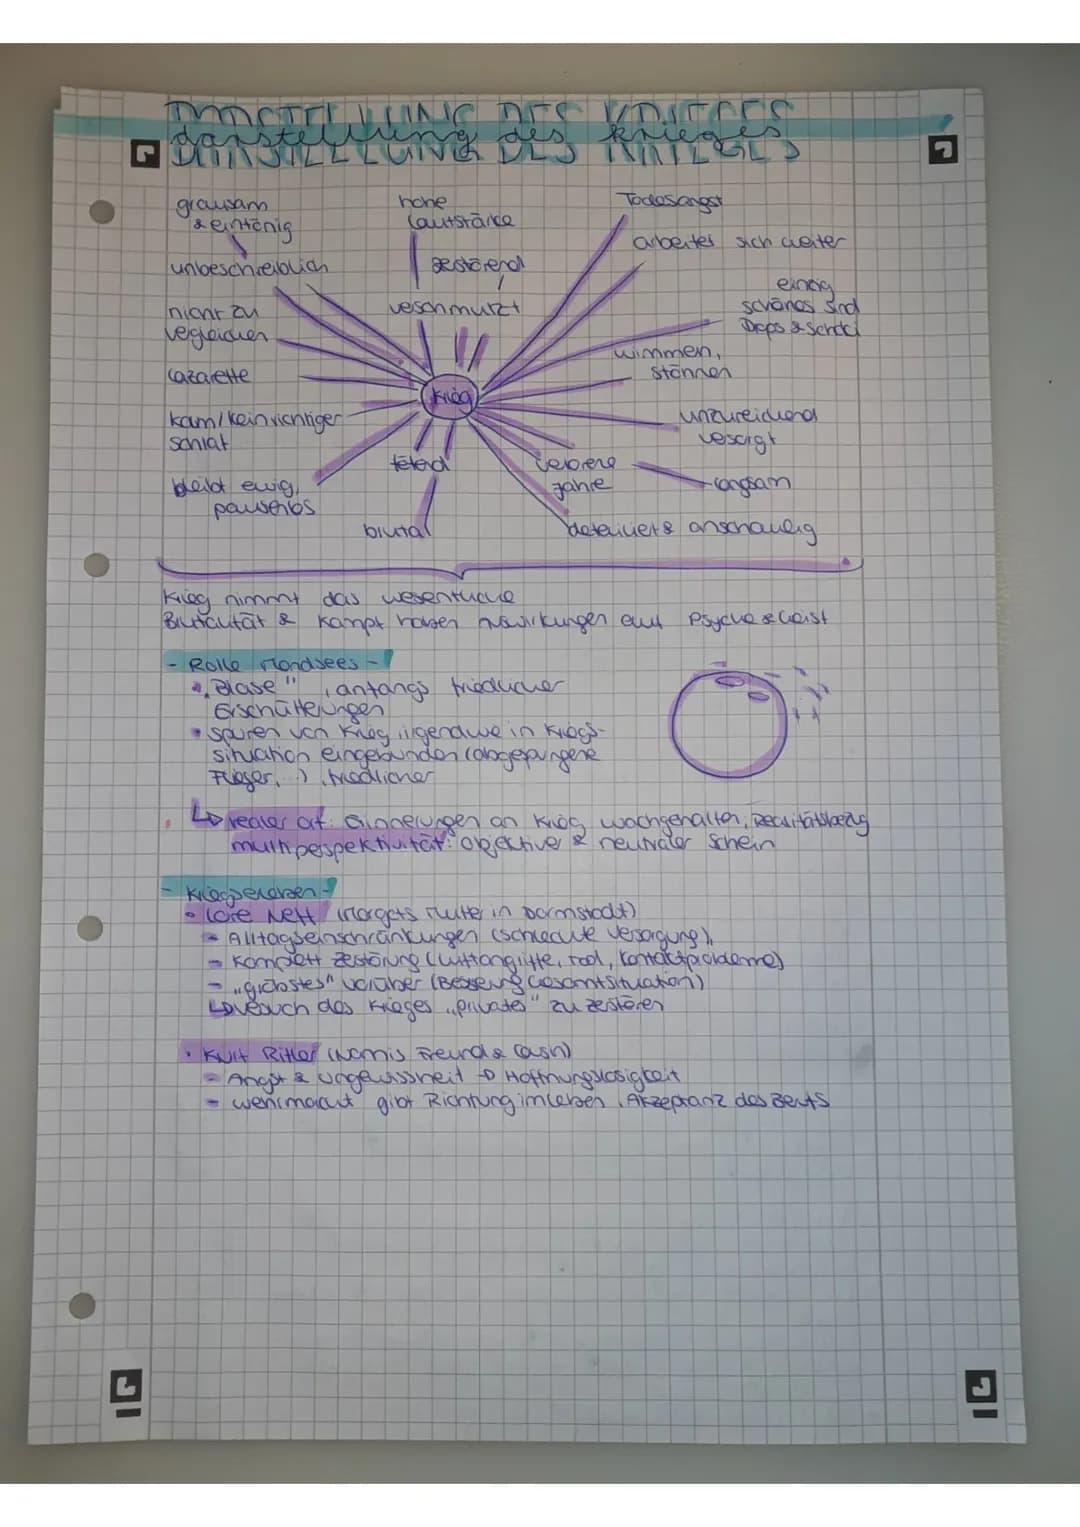 DARSTELLUNG DES KRIEGES
darstellung des krieges
grausam
& eintönig
unbeschreiblich
nicht zu
vegleichen
Lazarette
kaum/kein richtiger
schlaf
bleibt ewig,
pausenlos
hohe
Lautstärke
zestörend
veschmutzt
Krieg
tötend
brutal
Todesangst
arbeitet sich weiter
einzig
schönes sind
Drops & Schoki
wimmern,
stöhnen
unzureichend
vesorgt
velorene
Jahre
langsam
detailliert & anschaulig
Krieg nimmt das wesentliche
Brutalität & Kampf haben Auswirkungen auf Psyche & Geist
- Rolle Mondsees -
• „Blase", anfangs friedlicher
Erschütterungen
• Spuren von Krieg, irgendwie in Kriegs-
situation eingebunden (abgesprungene
Flieger,...), friedlicher
↳ realer Ort: Erinnerungen an Krieg wachgehalten, Realitätsbezug
multiperspektivität: objektive & neutraler Schein
- Kriegserleben -
• Lore Neff (Margots Mutter in Darmstadt)
- Alltagseinschränkungen (schlechte Versorgung),
- Komplett Zestörung (Luftangriffe, Tod, Kontaktprobleme)
- „gröbstes" vorüber (Besserung Gesamtsituation)
↳ vesuch des Krieges „privates" zu zestören
• Kurt Ritler (Nannis Freund & Cousin)
- Angst & Ungewissheit → Hoffnungslosigkeit
- Wehrmacht gibt Richtung im Leben, Akzeptanz des Berufs